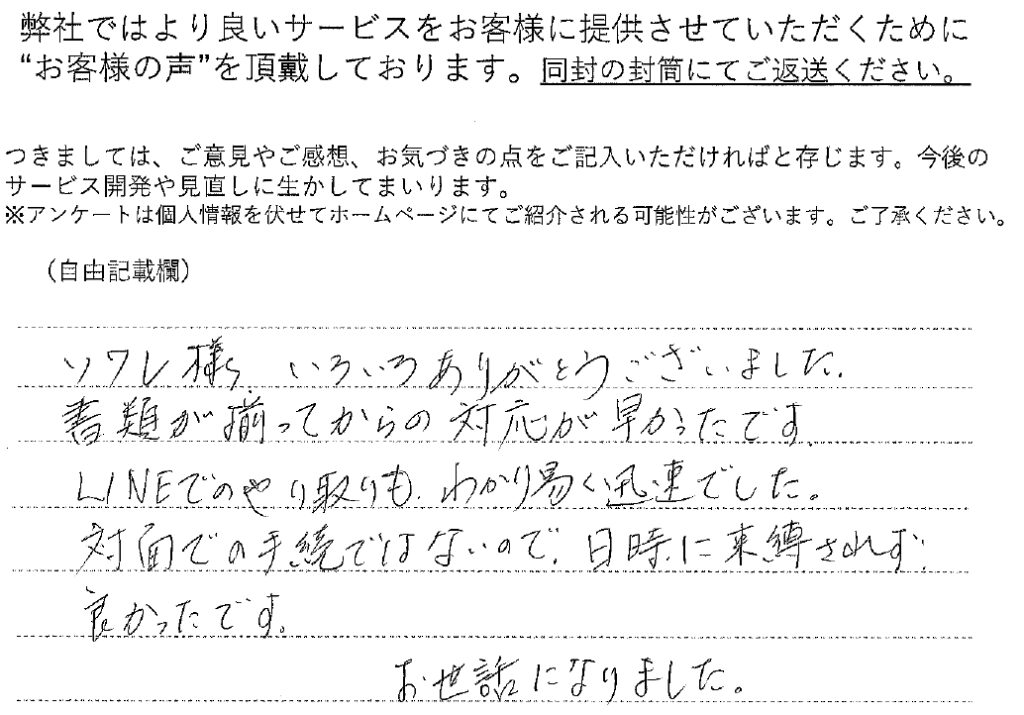 弊社ではより良いサービスをお客様に提供させていただくために
“お客様の声”を頂戴しております。同封の封筒にてご返送ください。
つきましては、ご意見やご感想、お気づきの点をご記入いただければと存じます。今後の
サービス開発や見直しに生かしてまいります。
※アンケートは個人情報を伏せてホームページにてご紹介される可能性がございます。ご了承ください。
（自由記載欄）
ソワレ様、いろいろありがとうございました。
書類が揃ってからの対応が早かったです。
LINEでのやり取りも、わかり易く迅速でした。
対面での手続ではないので、日時に束縛されず、
良かったです。
お世話になりました。